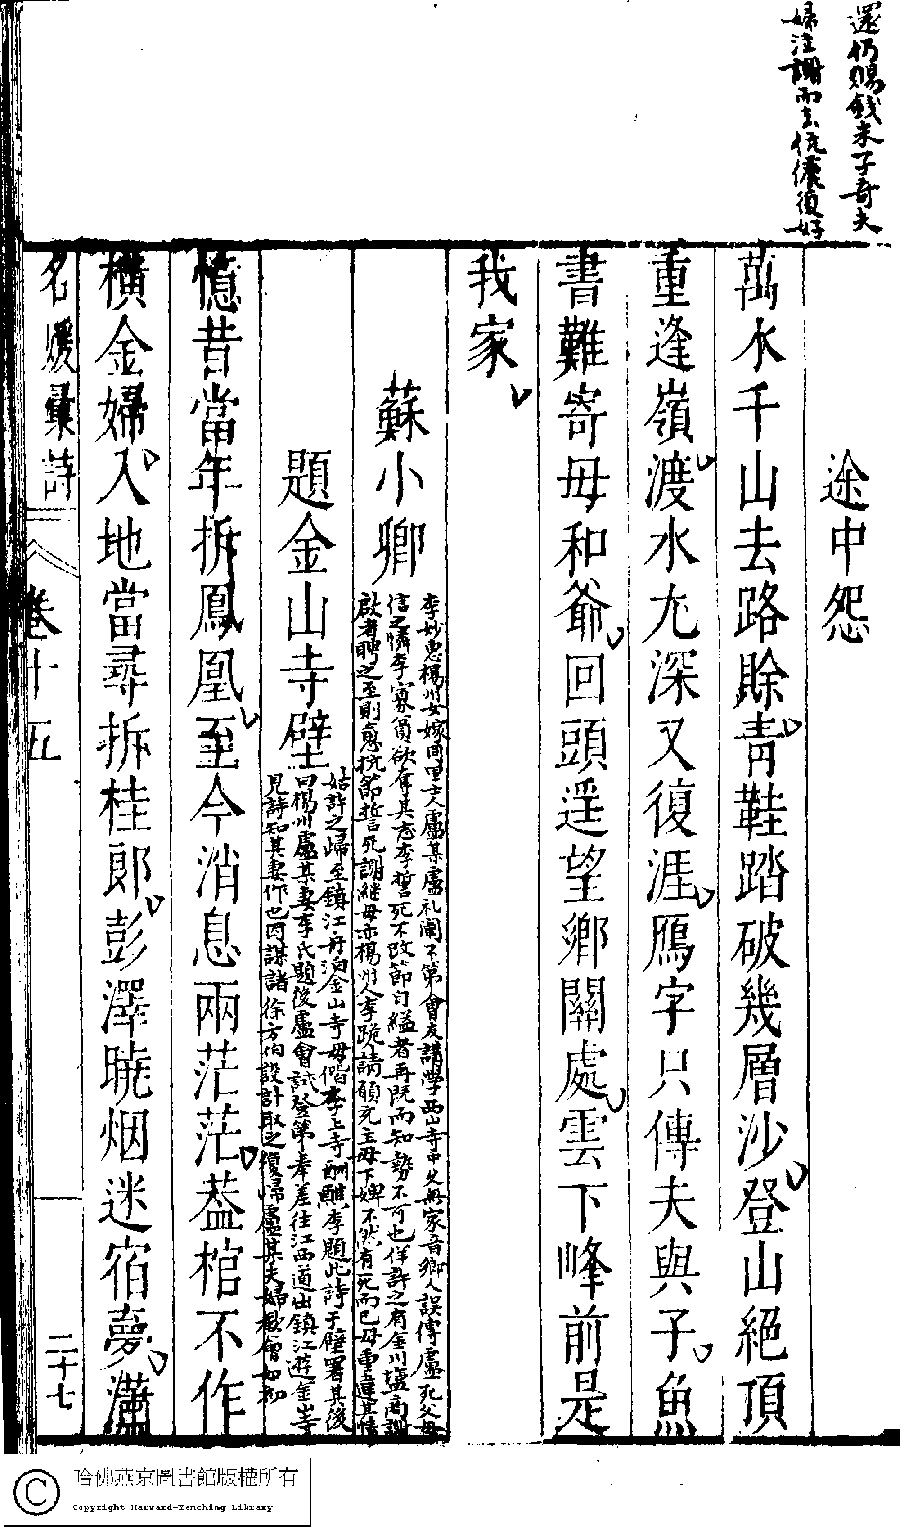 還仍賜錢米子奇夫
婦泣謝而去伉儷復好
途中怨
萬水千山去路賒青鞋踏破幾層沙登山絕頂
重逢嶺渡水尤深又復涯鴈字只傳夫與子魚
書難寄母和爺回頭遥望鄉關處雲下峰前是
我家
蘇小卿
李妙惠楊州女嫁同里士人盧某盧礼闈下第會友講學西山寺中久無家音鄉人誤傳盧死父母
信之憐李寡貧欲奪其志李誓死不改節自縊者再既而知勢不可也佯許之有金川塩商謝
啟者聘之至則愈抗節誓死謝繼母亦楊州人李跪請願充主母下婢不然有死而已母重違其情
題金山寺壁
姑許之歸至鎮江舟泊金山寺母偕李上寺酬醮李題此詩于壁署其後
曰楊州盧某妻李氏題後盧會試登第奉差往江西道出鎮江遊金山寺
見詩知其妻作也因謀諸徐方伯設計取之復歸盧其夫婦歡會如初
憶昔當年拆鳳凰至今消息兩茫茫葢棺不作
橫金婦入地當尋拆桂郎彭澤曉烟迷宿夢瀟
名媛彙詩
卷十五
二十七
哈佛燕京圖書館版權所有
© Copyright Harvard-Yenching Library